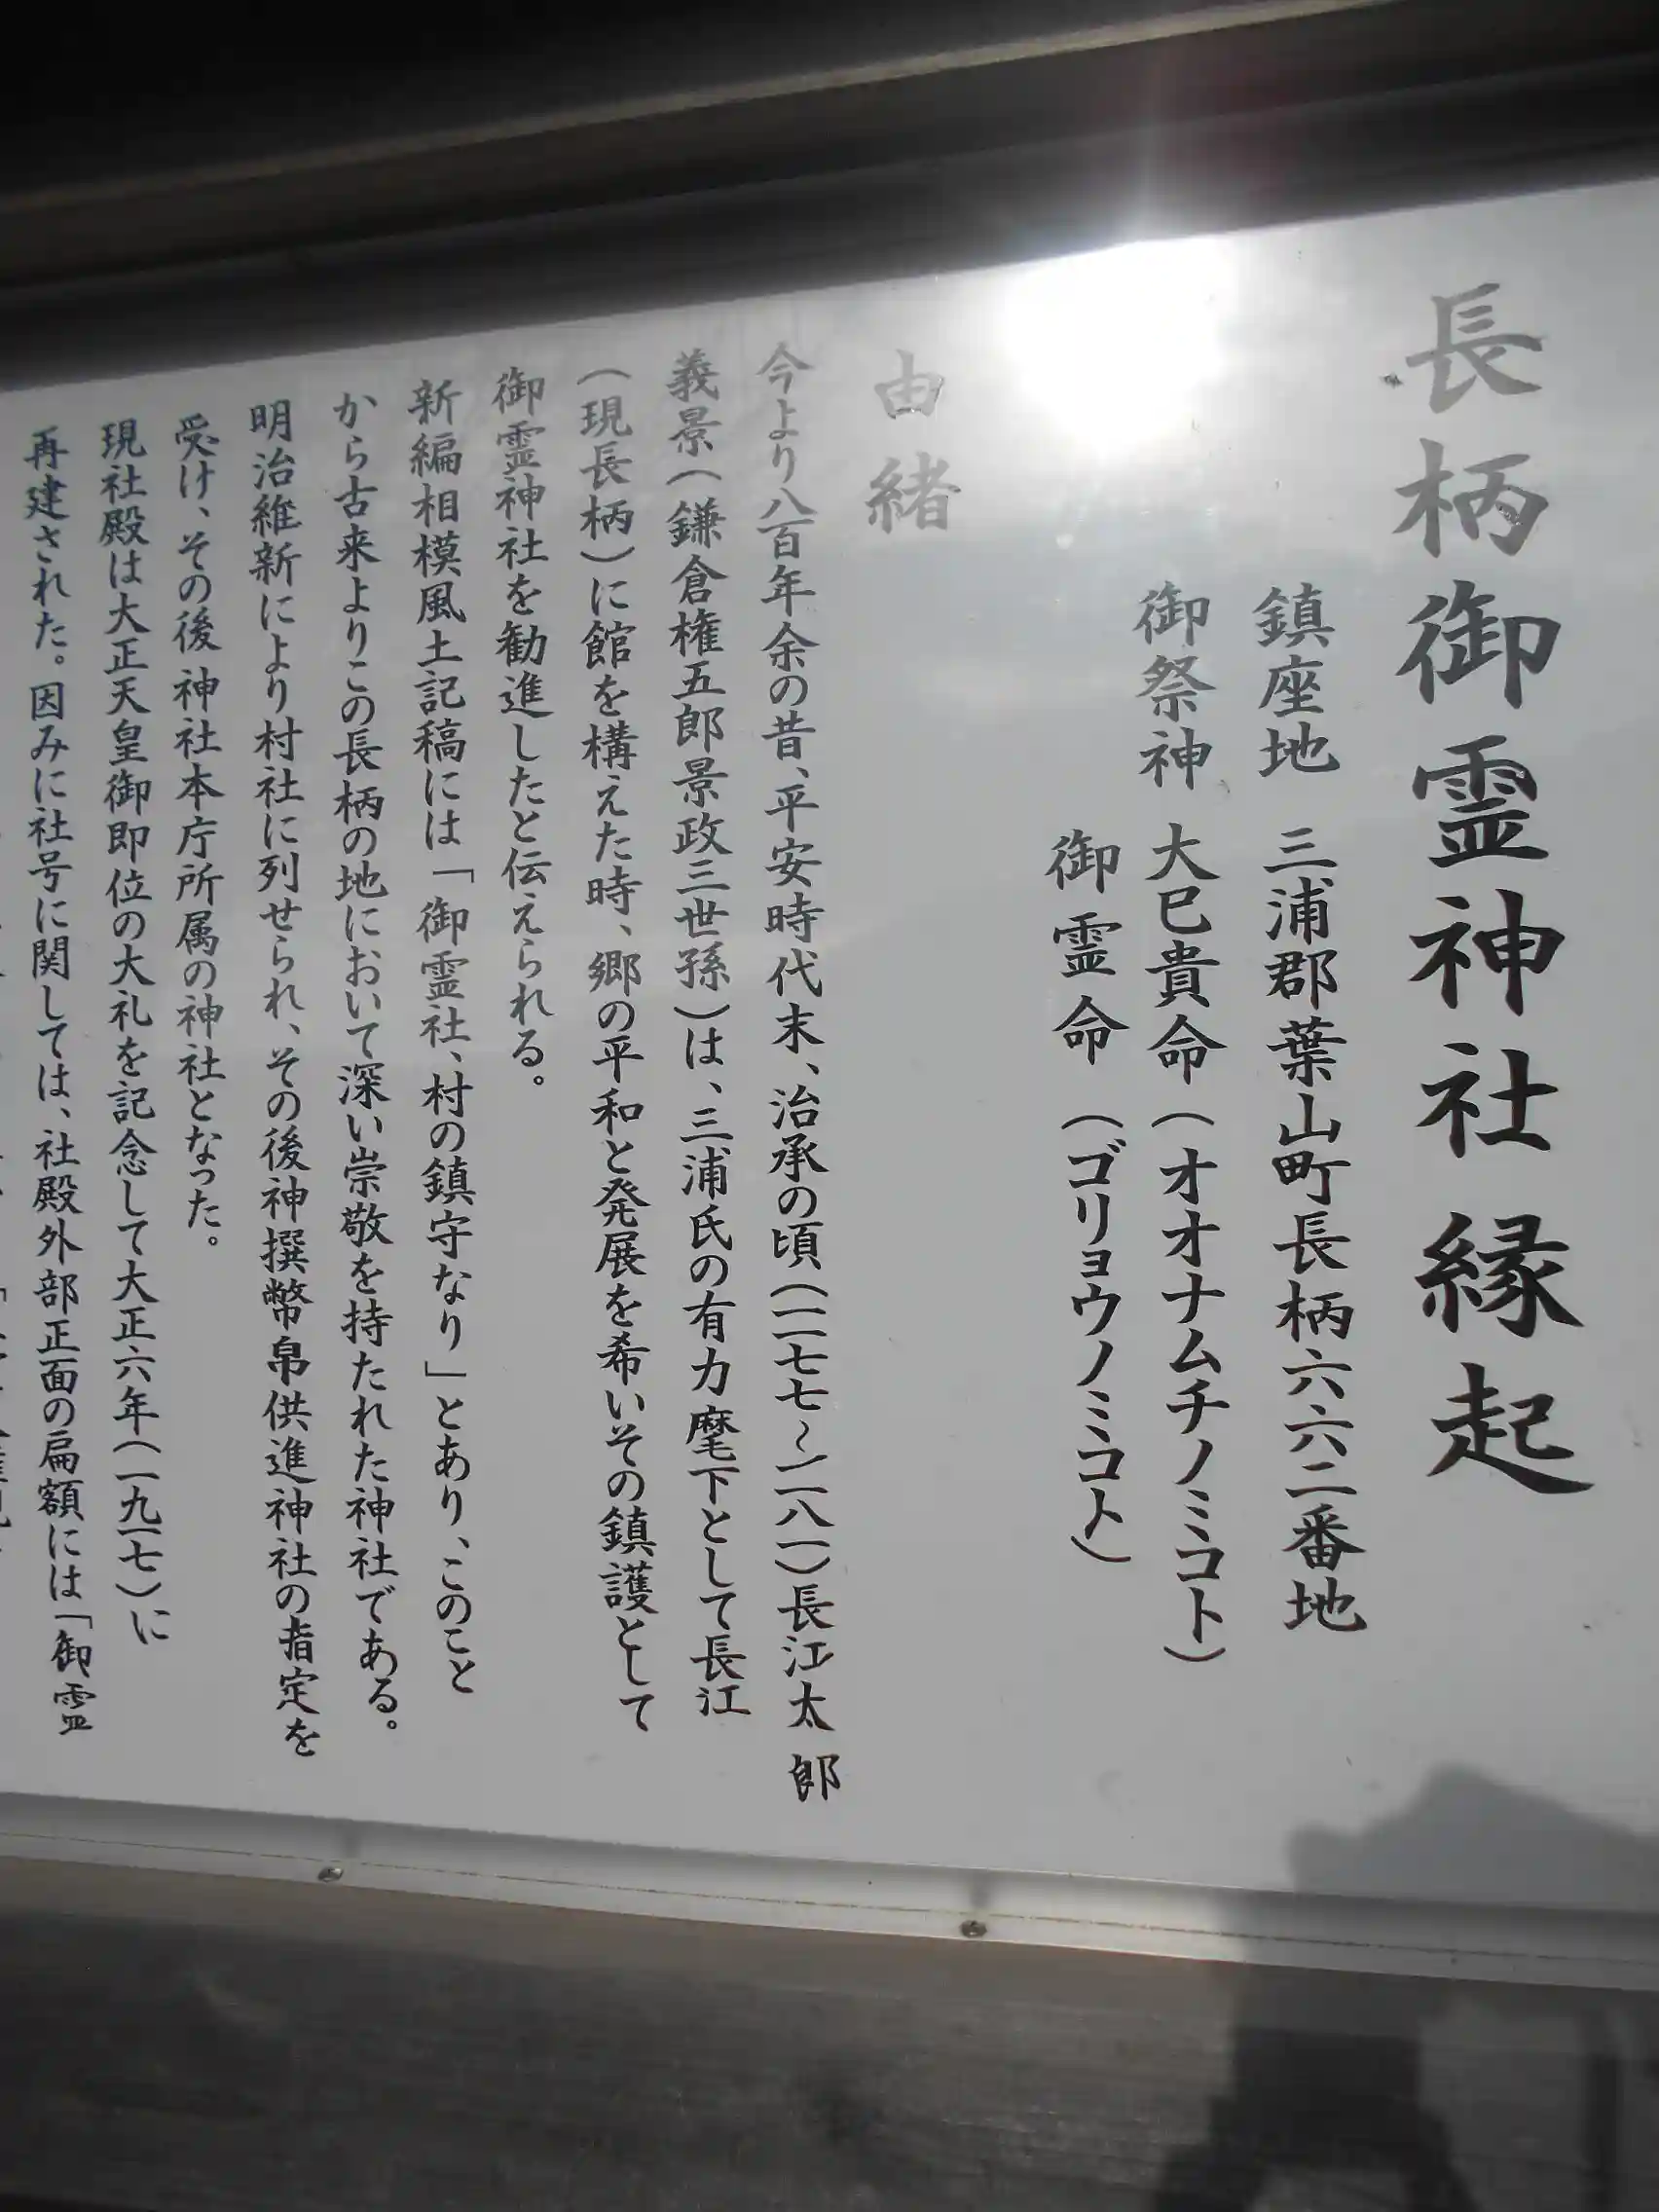 長柄御霊神社縁起
鎮座地 三浦郡葉山町長柄六六二番地
御祭神 大巳貴命(オオナムチノミコト)
御霊命(ゴリョウノミコト)
由緒
今より八百年余の昔、平安時代末、治承の頃(一一七七～一一八一)長江太郎
義景(鎌倉権五郎景政三世孫)は、三浦氏の有力麾下として長江
(現長柄)に館を構えた時、郷の平和と発展を希いその鎮護として
御霊神社を勧進したと伝えられる。
新編相模風土記稿には「御霊社、村の鎮守なり」とあり、このこと
から古来よりこの長柄の地において深い崇敬を持たれた神社である。
明治維新により村社に列せられ、その後神撰幣帛供進神社の指定を
受け、その後神社本庁所属の神社となった。
現社殿は大正天皇御即位の大礼を記念して大正六年(一九一七)に
再建された。因みに社号に関しては、社殿外部正面の扁額には「御霊